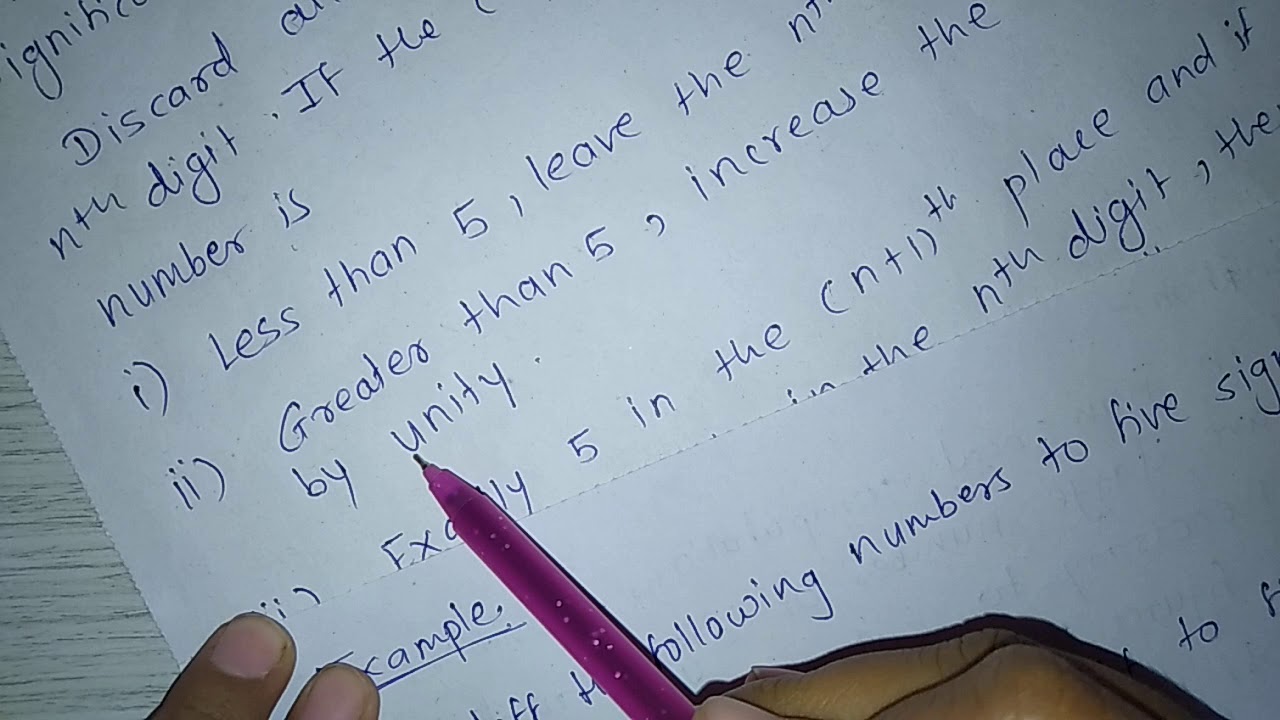 Discard
nth digit. If the (
number is
i) Less than 5, leave the nth
ii) Greater than 5, increase the
by unity.
Exactly 5 in the (n+1)th place and if
in the nth digit, the
Example.
following numbers to five sig
to